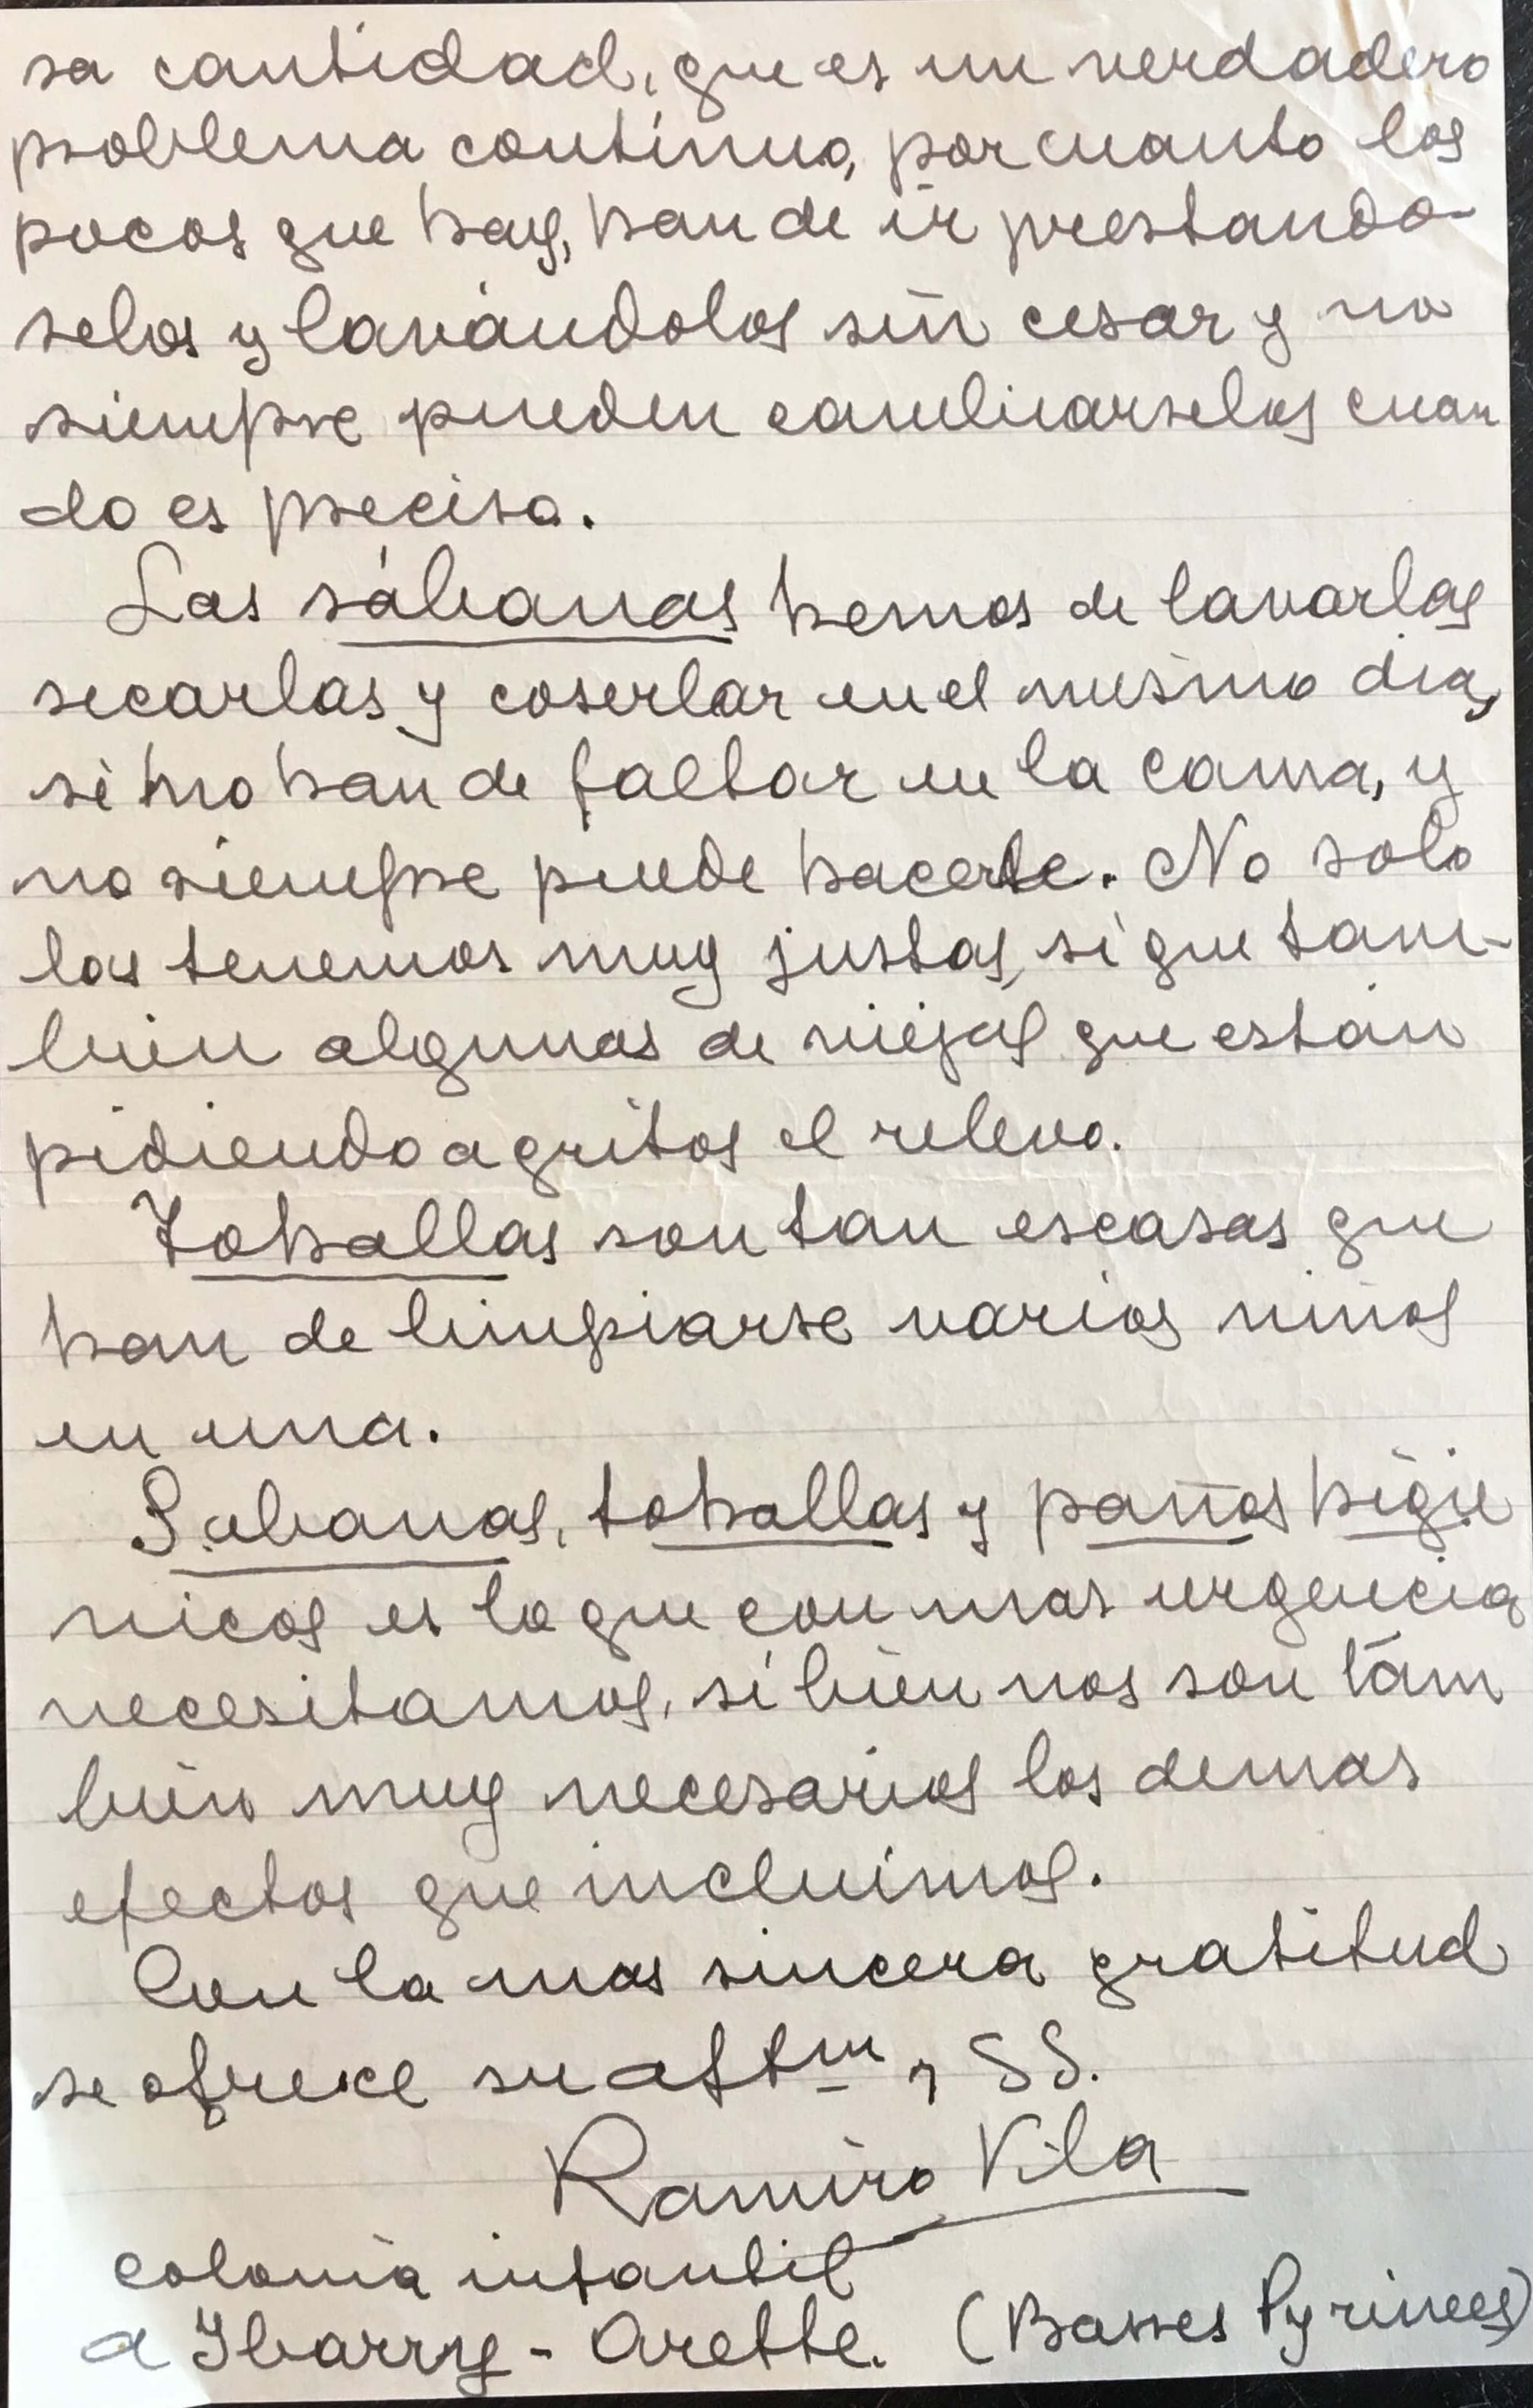 sa cantidad, que es un verdadero
problema contínuo, por cuanto los
pocos que hay, han de ir prestando-
selos y lavándolos sin cesar y no
siempre pueden cambiarselos cuan
do es preciso.
Las sábanas hemos de lavarlas
secarlas y coserlar en el mismo dia,
si no han de faltar en la cama, y
no siempre puede hacerse. No solo
las tenemos muy justas, si que tam-
bien algunas de viejas que están
pidiendo a gritos el relevo.
Tohallas son tan escasas que
han de limpiarse varios niños
en una.
Sabanas, tohallas y paños higie
nicos es lo que con mas urgencia
necesitamos, si bien nos son tam
bien muy necesarios los demas
efectos que incluimos.
Con la mas sincera gratitud
se ofrece su aftm y SS.
Ramiro Vila
colonia infantil
a Ibarry - Arette. (Basses Pyrinees)